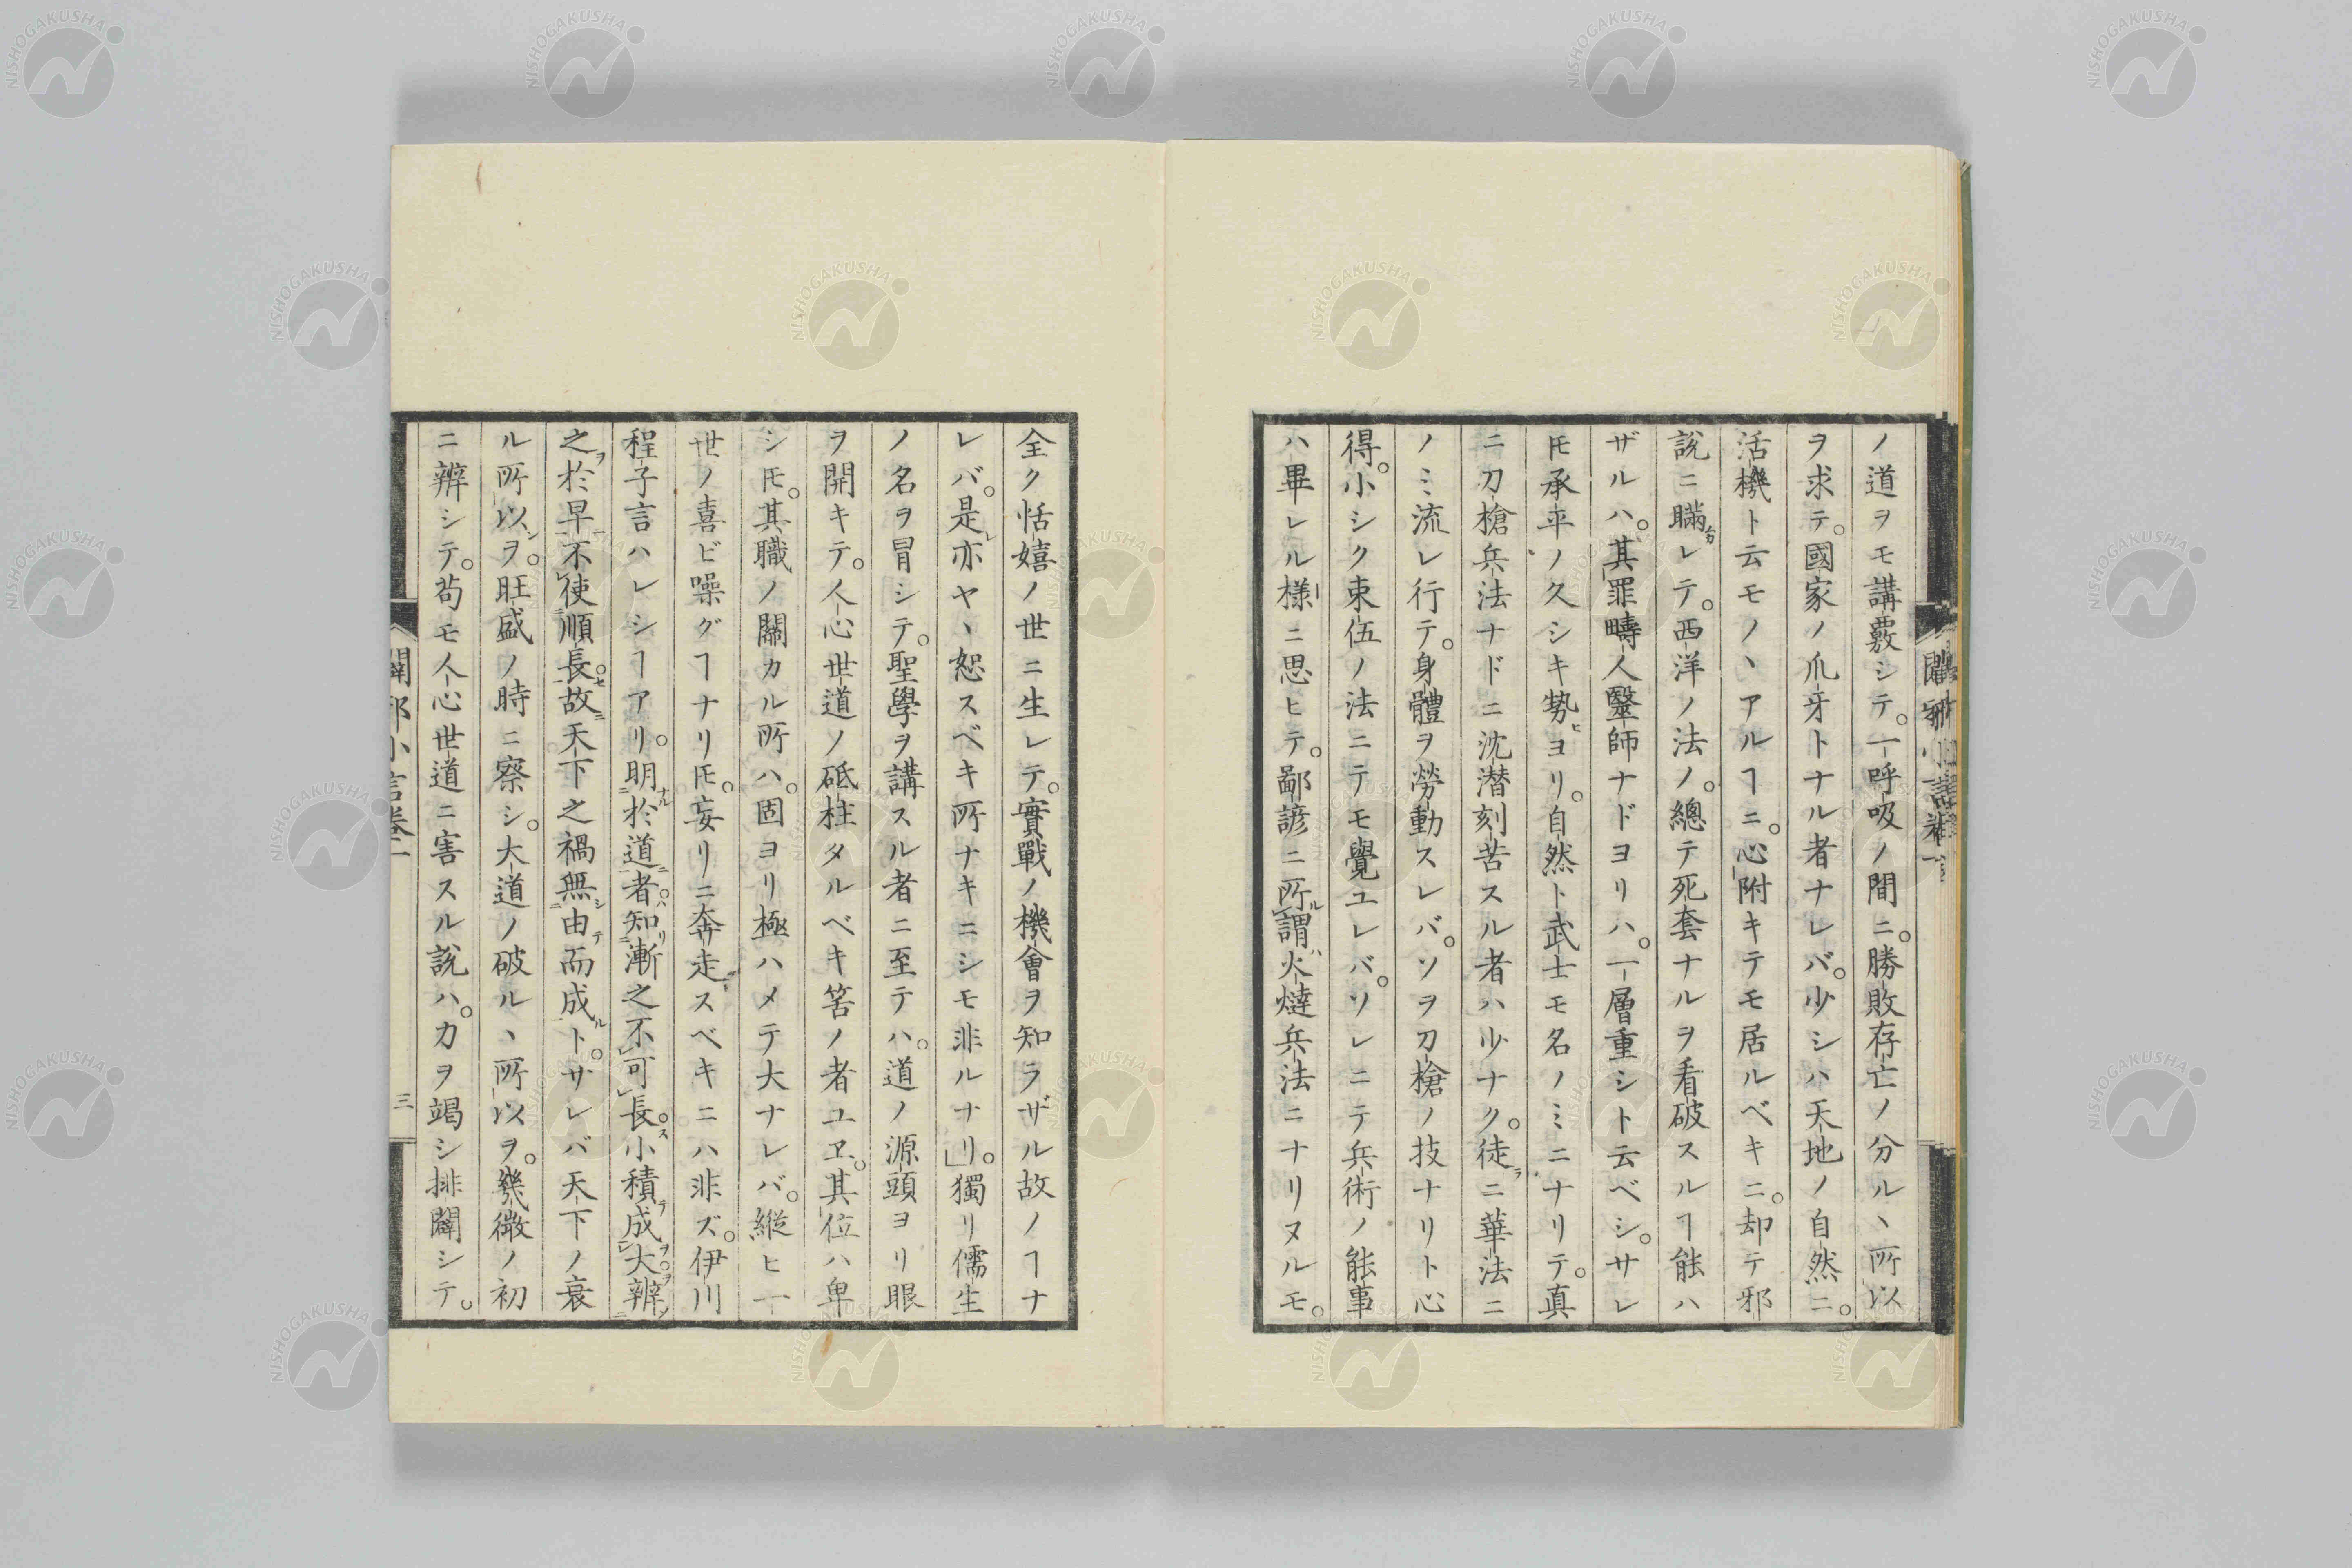 ノ道ヲモ講覈シテ。一呼吸ノ間ニ。勝敗存亡ノ分ルヽ所以
ヲ求テ。國家ノ爪牙トナル者ナレバ。少シハ天地ノ自然ニ。
活機ト云モノヽアルヿニ。心附キテモ居ルベキニ。却テ邪
説ニ瞞レテ。西洋ノ法ノ。總テ死套ナルヲ看破スルヿ能ハ
ザルハ。其罪疇人醫師ナドヨリハ。一層重シト云ベシ。サレ
𪜈承平ノ久シキ勢ヒヨリ。自然ト武士モ名ノミニナリテ。真
ニ刀槍兵法ナドニ沈潜刻苦スル者ハ少ナク。徒ラニ華法ニ
ノミ流レ行テ。身體ヲ勞動スレバ。ソヲ刀槍ノ技ナリト心
得。小シク束伍ノ法ニテモ覺ユレバ。ソレニテ兵術ノ能事
ハ畢レル様ニ思ヒテ。鄙諺ニ所謂ル火燵兵法ニナリヌルモ。
全ク恬嬉ノ世ニ生レテ。實戰ノ機會ヲ知ラザル故ノヿナ
レバ。是レ亦ヤヽ恕スベキ所ナキニシモ非ルナリ」。獨リ儒生
ノ名ヲ冒シテ。聖學ヲ講スル者ニ至テハ。道ノ源頭ヨリ眼
ヲ開キテ。人心世道ノ砥柱タルベキ筈ノ者ユヱ。其位ハ卑
シ𪜈。其職ノ關カル所ハ。固ヨリ極ハメテ大ナレバ。縦ヒ一
世ノ喜ビ噪グヿナリ𪜈。妄リニ奔走スベキニハ非ズ。伊川
程子言ハレシヿアリ。明於道者知漸之不可長。小積成大。辨
之於早不使順長。故天下之禍無由而成ト。サレバ天下ノ衰
ル所以ヲ。旺盛ノ時ニ察シ。大道ノ破ルヽ所以ヲ。幾微ノ初
ニ辨シテ。苟モ人心世道ニ害スル説ハ。力ヲ竭シ排闢シテ。
闢邪小言卷一
三